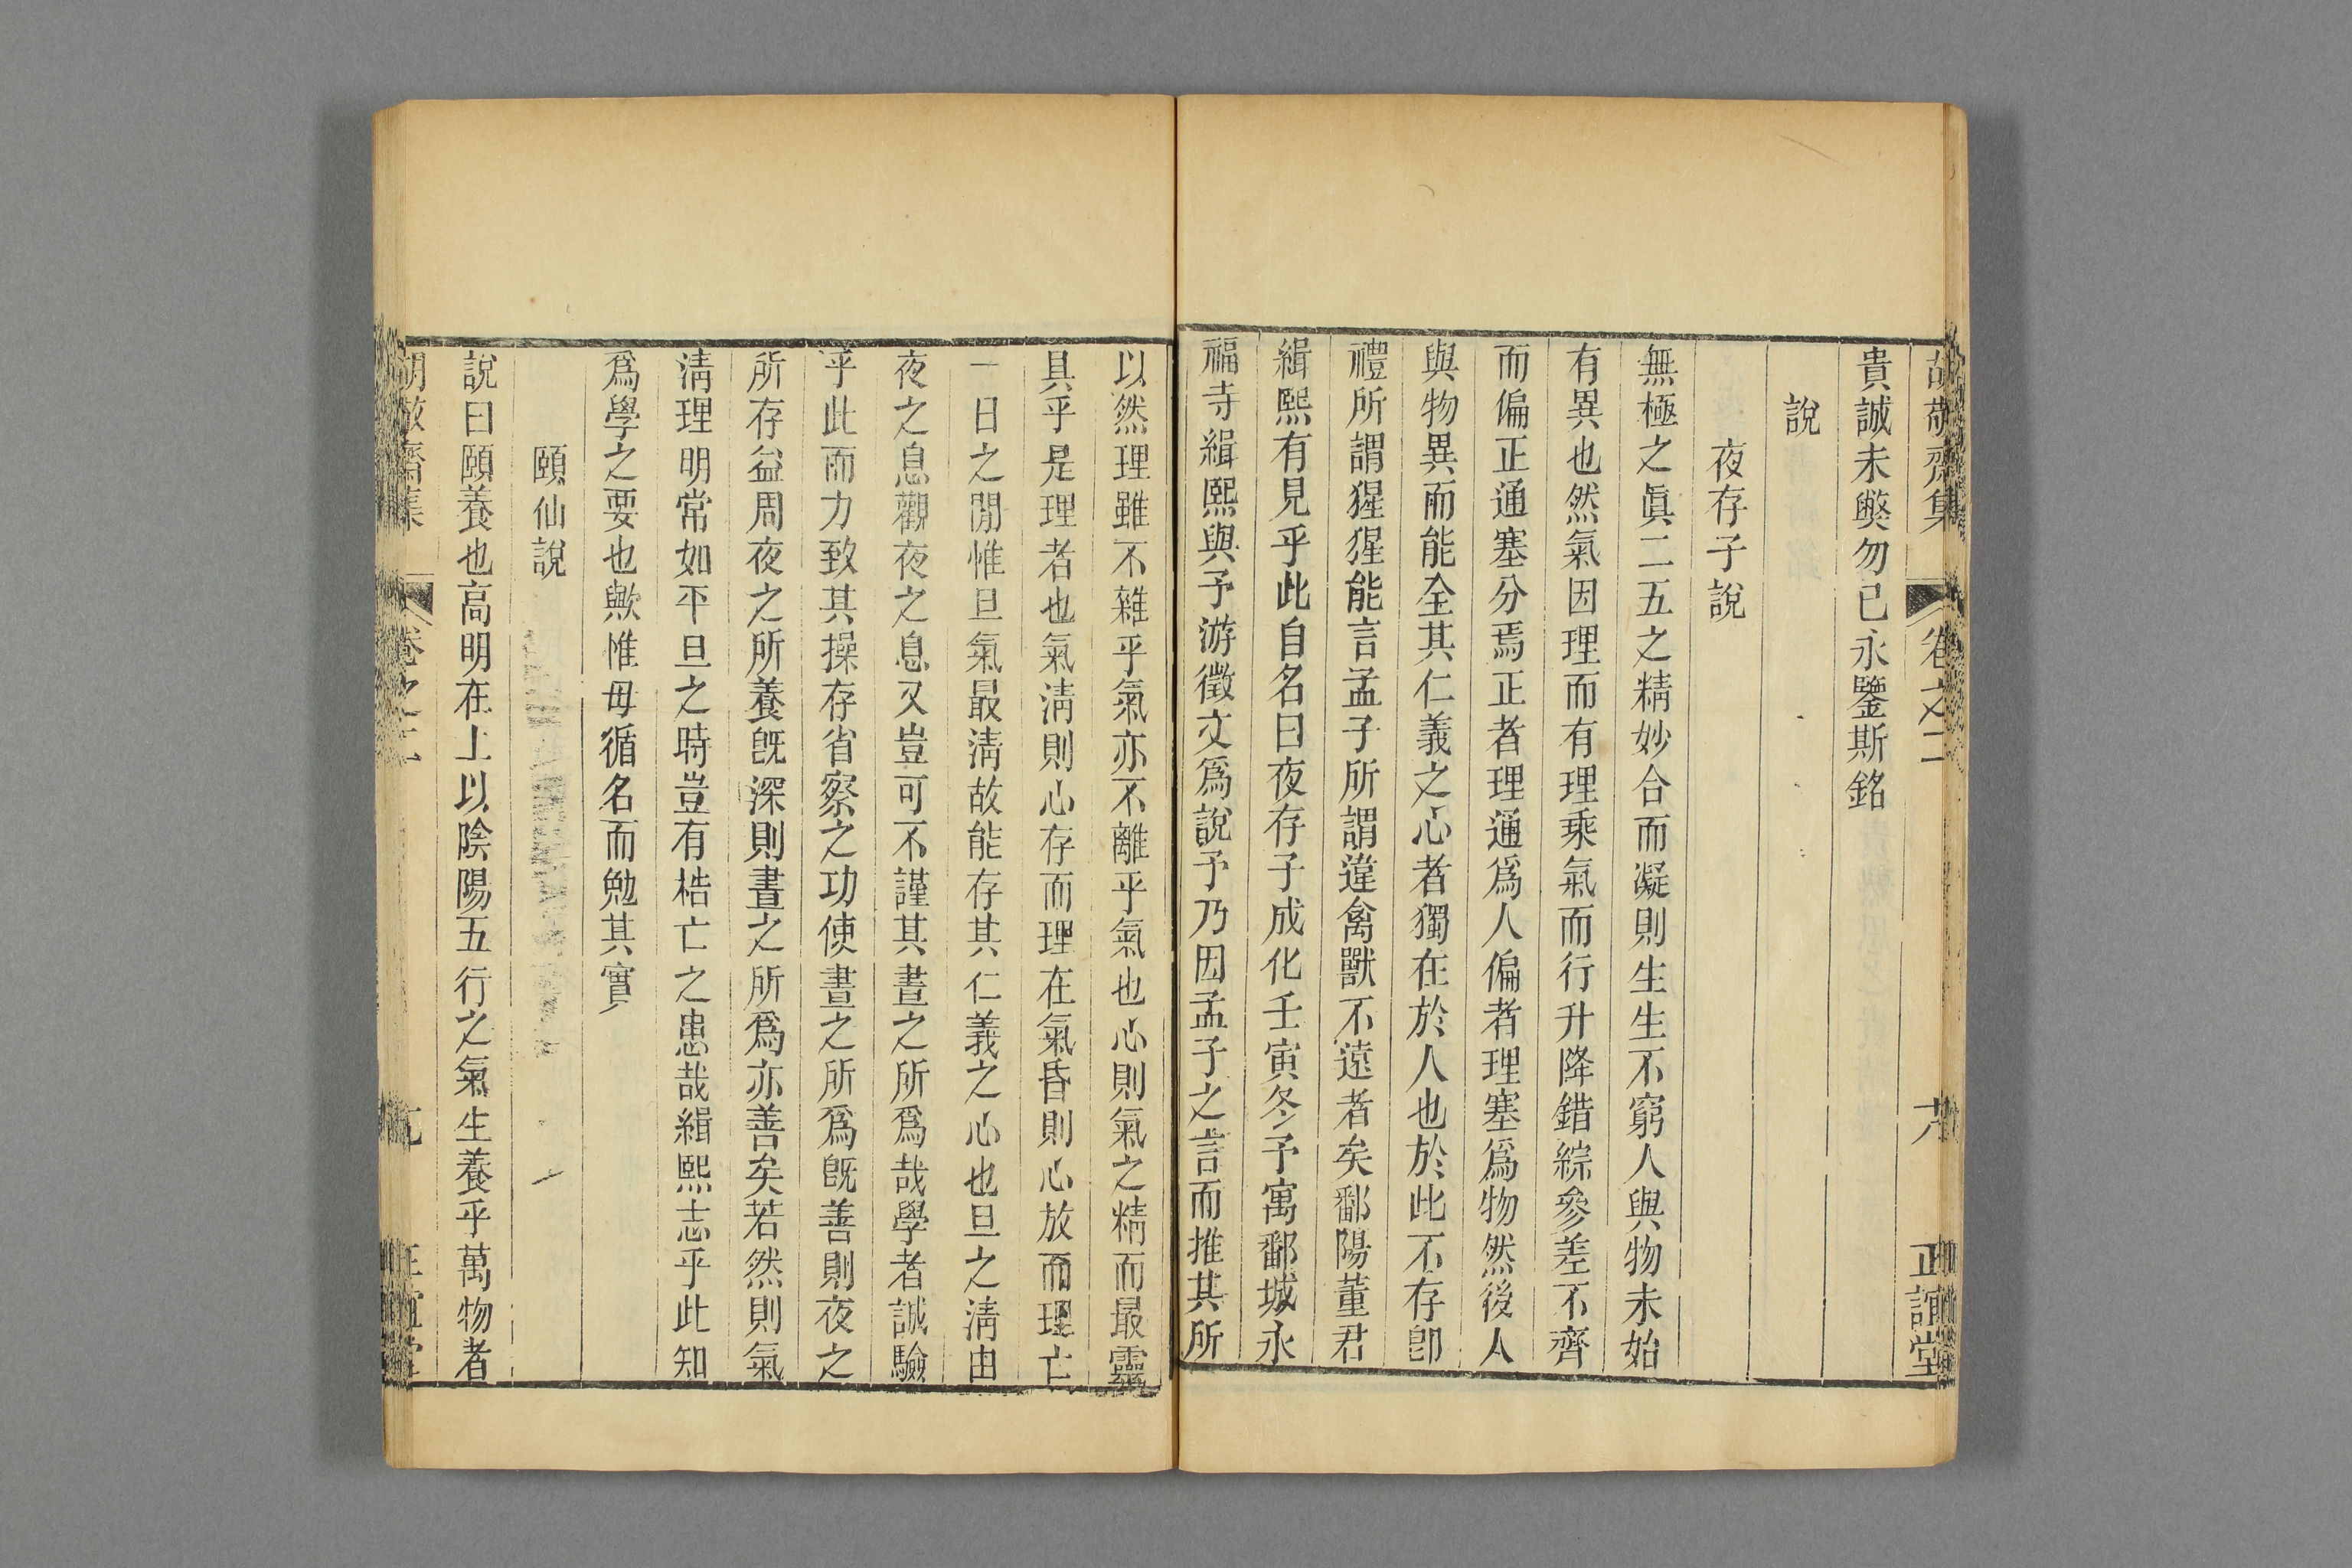 胡敬齋集
卷之二
正誼堂
貴誠未獘勿已永鑒斯銘
說
夜存子說
無極之眞二五之精妙合而凝則生生不窮人與物未始
有異也然氣因理而有理乘氣而行升降錯綜參差不齊
而偏正通塞分焉正者理通爲人偏者理塞爲物然後人
與物異而能全其仁義之心者獨在於人也於此不存卽
禮所謂猩猩能言孟子所謂違禽獸不遠者矣鄱陽董君
緝熙有見乎此自名曰夜存子成化壬寅冬予寓鄱城永
福寺緝熙與予游徵文爲說予乃因孟子之言而推其所
以然理雖不雜乎氣亦不離乎氣也心則氣之精而最靈
具乎是理者也氣淸則心存而理在氣昏則心放而理亡
一日之閒惟旦氣最淸故能存其仁義之心也旦之淸由
夜之息觀夜之息又豈可不謹其晝之所爲哉學者誠驗
乎此而力致其操存省察之功使晝之所爲旣善則夜之
所存益周夜之所養旣深則晝之所爲亦善矣若然則氣
淸理明常如平旦之時豈有梏亡之患哉緝熙志乎此知
爲學之要也歟惟毋循名而勉其實
頤仙說
說曰頤養也高明在上以陰陽五行之氣生養乎萬物者
胡敬齋集
卷之二
正誼堂